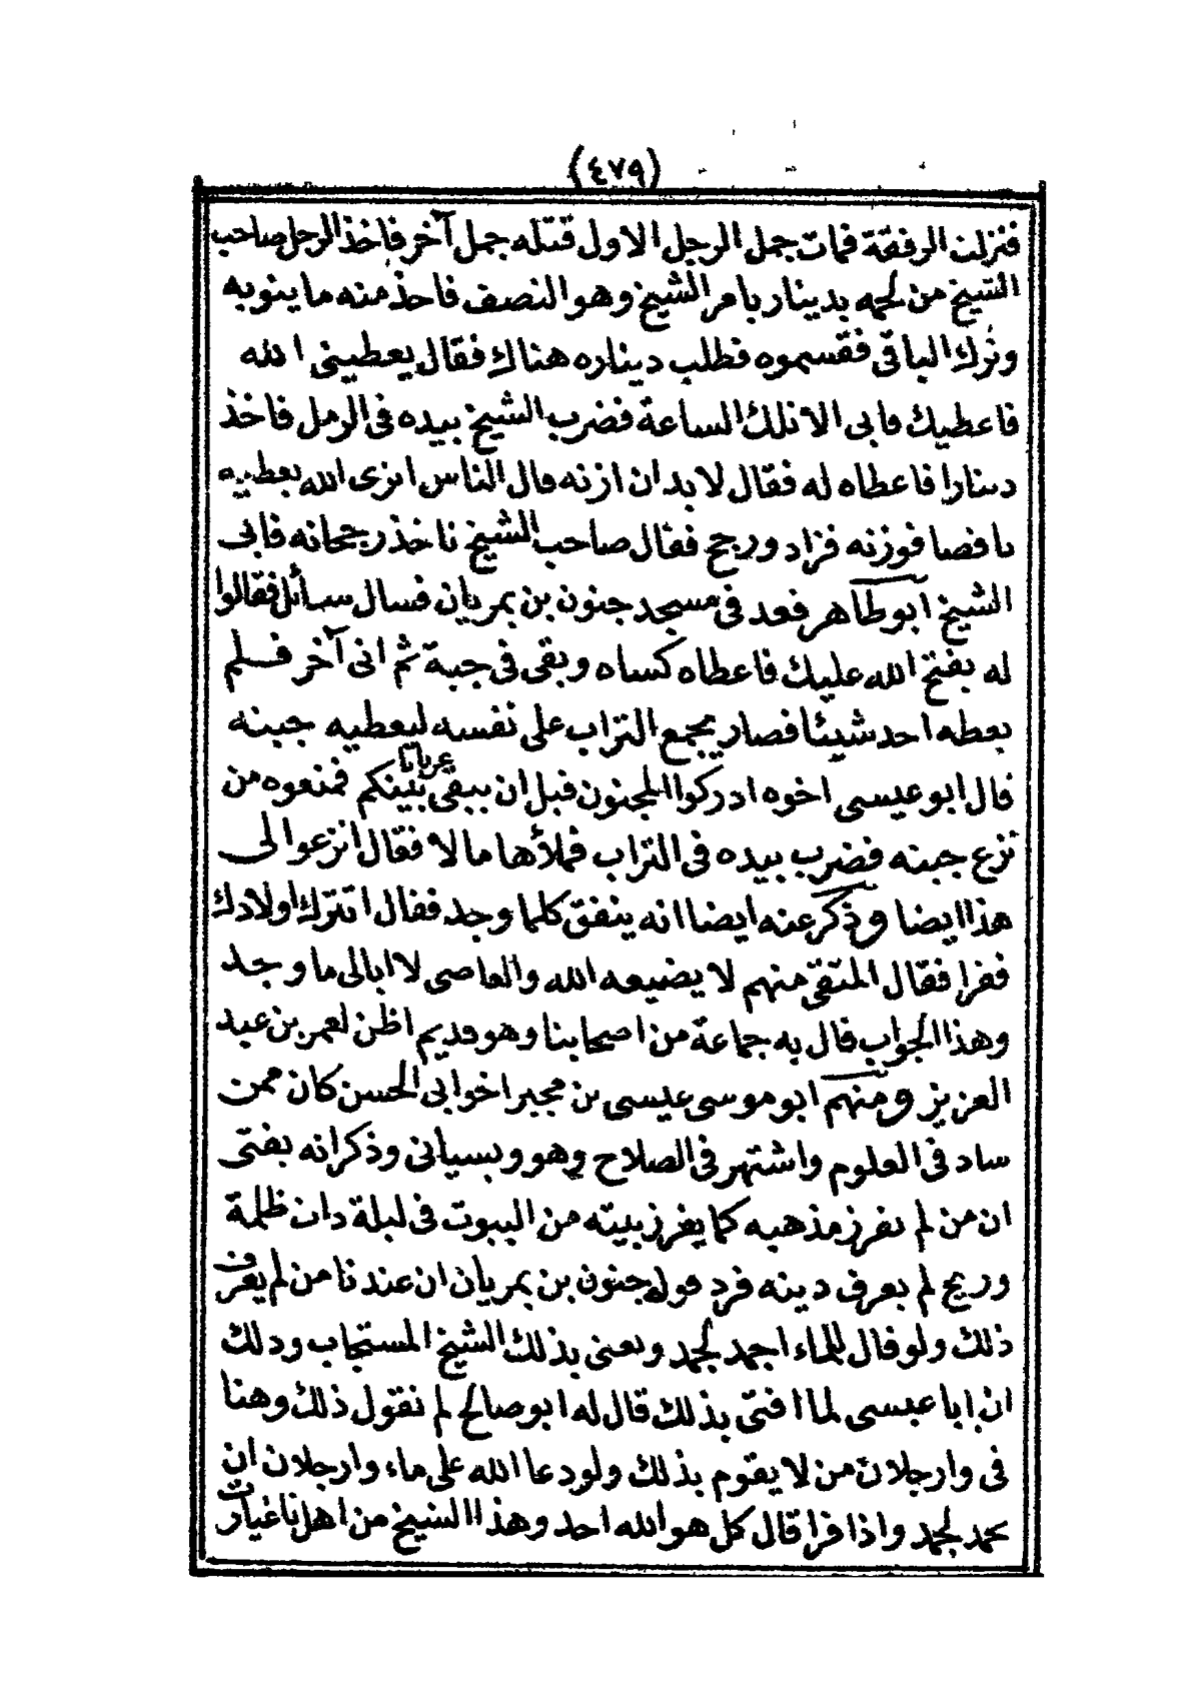 (٤٧٩)
فنزلت الرفقة فمات جمل الرجل الاول قتله جمل آخر فاخذ الرجل صاحب
الشيخ من لحمه بدينار بامر الشيخ وهو النصف فاخذ منه ما ينوبه
وترك الباقى فقسموه فطلب ديناره هناك فقال يعطينى الله
فاعطيك فابى الا تلك الساعة فضرب الشيخ بيده فى الرمل فاخذ
دينارا فاعطاه له فقال لا بد ان ازنه قال الناس اترى الله يعطيه
ناقصا فوزنه فزاد ورجح فقال صاحب الشيخ ناخذ رجحانه فابى
الشيخ ابو طاهر فعد فى مسجد جنون بن يمريان فسال سائل فقالوا
له يفتح الله عليك فاعطاه كساه وبقى فى جبة ثم اتى آخر فلم
يعطه احد شيئا فصار يجمع التراب على نفسه ليعطيه جبته
قال ابو عيسى اخوه ادركوا المجنون قبل ان يبقى بينكم عريانا فمنعوه من
نزع جبته فضرب بيده فى التراب فملأها مالا فقال انزعوا لى
هذا ايضا وذكر عنه ايضا انه ينفق كلما وجد فقال اتترك اولادك
فقرا فقال المتقى منهم لا يضيعه الله والعاصى لا ابالى ما وجد
وهذا الجواب قال به جماعة من اصحابنا وهو قديم اظن لعمر بن عبد
العزيز ومنهم ابو موسى عيسى بن مجبر اخوا بى الحسن كان ممن
ساد فى العلوم واشتهر فى الصلاح وهو ويسيانى وذكر انه يفتى
ان من لم يفرز مذهبه كما يفرز بيته من البيوت فى ليلة ذات ظلمة
وريح لم يعرف دينه فرد قوله جنون بن يمريان ان عندنا من لم يعرف
ذلك ولو قال للماء اجمد لجمد ويعنى بذلك الشيخ المستجاب وذلك
ان ابا عيسى لما افتى بذلك قال له ابو صالح لم نقول ذلك وهنا
فى وارجلان من لا يقوم بذلك ولو دعا الله على ماء وارجلان ان
يجمد لجمد واذا قرا قال كل هو الله احد وهذا الشيخ من اهل تاغيارت